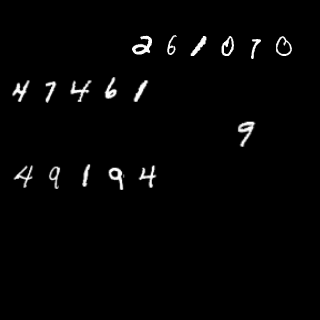 261070
47461
9
49194